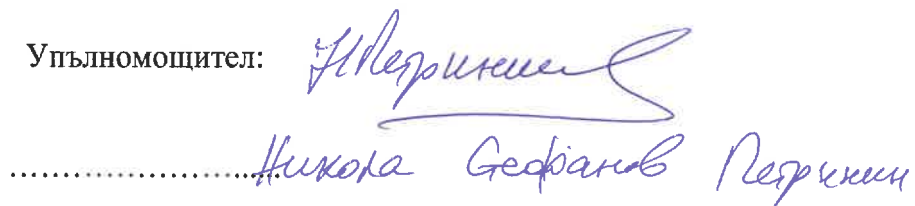 Упълномощител: НПетринин
.......................... Никола Стефанов Петринин